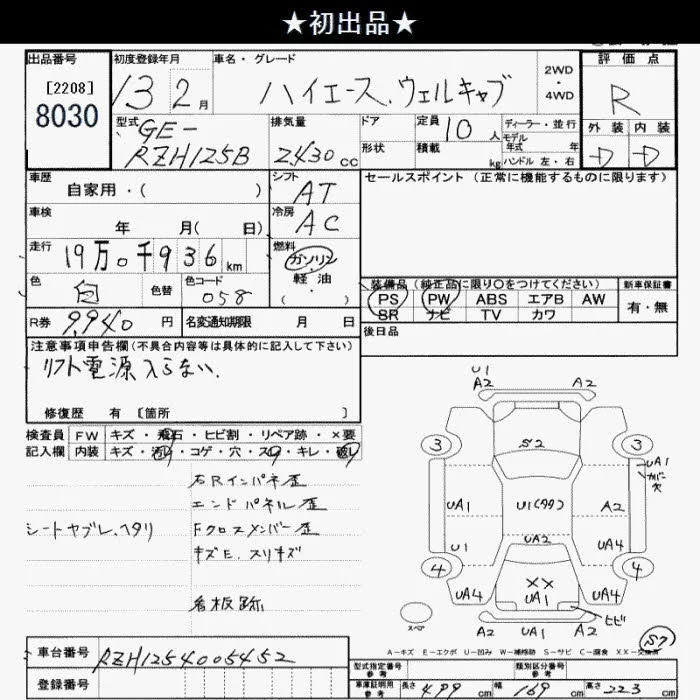 ★初出品★
出品番号 初度登録年月 車名・グレード 評価点
[2208]
8030
13 2月 ハイエース.ウェルキャブ 2WD・4WD R
型式 GE-RZH125B 排気量 2,430cc ドア 形状 定員 10人 積載 kg ディーラー・並行 モデル年式 年 ハンドル 左・右 外装 D 内装 D
車歴 自家用・( ) シフト AT セールスポイント(正常に機能するものに限ります)
車検 年 月( 日) 冷房 AC
走行 19万0千936km 燃料 ガソリン
色 白 色替 色コード 058 軽油 ・( )
装備品(純正品に限り○をつけてください) 新車保証書
PS PW ABS エアB AW 有・無
SR ナビ TV カワ
R券 9,940円 名変通知期限 月 日 後日品
注意事項申告欄(不具合内容等は具体的に記入して下さい)
リフト電源入らない.
修復歴 有 [箇所 ]
検査員 FW キズ・飛石・ヒビ割・リペア跡・×要
記入欄 内装 キズ・汚れ・コゲ・穴・スレ・キレ・破れ
右Rインパネ歪
エンドパネル歪
シートヤブレ.ヘタリ Fクロスメンバー歪
キズE.スリキズ
看板跡
U1
A2 A2
3 S2 3
UA1
カバー穴
UA1 U1(タタ) A2
U1 UA2 UA4
4 4
UA4 XX UA4
UA1
ヒビ
スペア A2 UA1 A2 (S7)
A-キズ E-エクボ U-凹み W-補修跡 S-サビ C-腐食 XX-交換済
車台番号 RZH1254005452
登録番号
型式指定番号 参考 類別区分番号 参考
車庫証明用 参考 長さ 499cm 幅 169cm 高さ 223cm